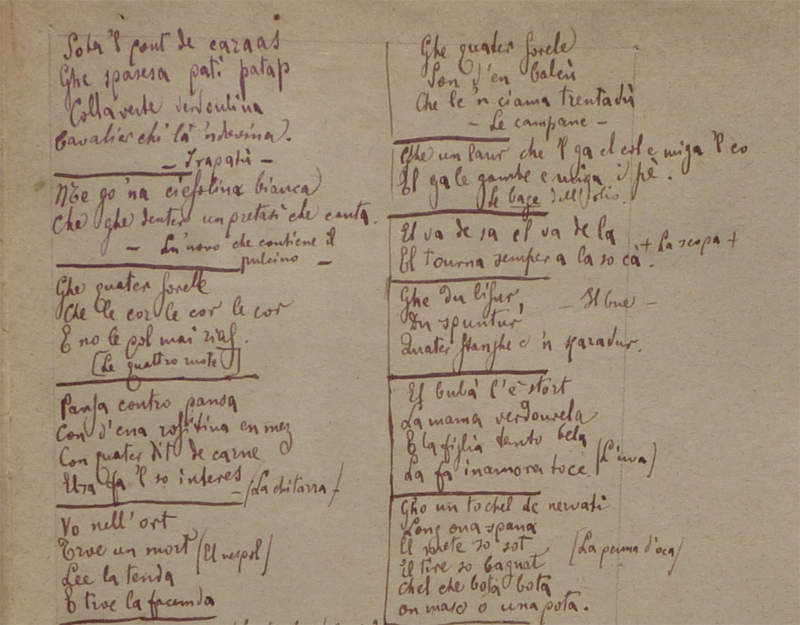 Sota 'l pont de caraas
Ghe spasesa patì patap
Colla verte verdoulina
Cavalier chi la 'ndovina.
– Trapatù –
Me go 'na ciesolina bianca
Che ghe denter un pretasì che canta.
– Un'novo che contiene il
pulcino –
Ghe quater sorele
Che le cor le cor le cor
E no le pol mai
(Le quattro ruote)
Pansa contro pansa
Con d'ena rossitina en mez
Con quater dit de carne
fa 'l so interes
– (La chitarra)
Vo nell'ort
Trove un mort
(El nespol)
Lee la tenda
E trove la facenda
Ghe quater sorele
Son d'en balcù
Che le 'n ciama trentadù
– Le campane –
Ghe un laur che 'l ga el col e miga 'l co
El ga le gambe e miga i pè.
Le bage dell'olio.
El va de sa el va de la
El tourna semper a la so cà.
+ La scopa +
Ghe du lisur,
– El bue –
Du spuntur
Quater stanghe e 'n paradur.
El bubà l'è stort
La mama verdourela
E la figlia tanto bela
La fa inamora toce.
(L'uva)
Gho un tochel de nervasì
Long ona spana
El mete so sot
(La penna d'oca)
El tire so bagnat
Chel che bota bota
on masc o una pota.